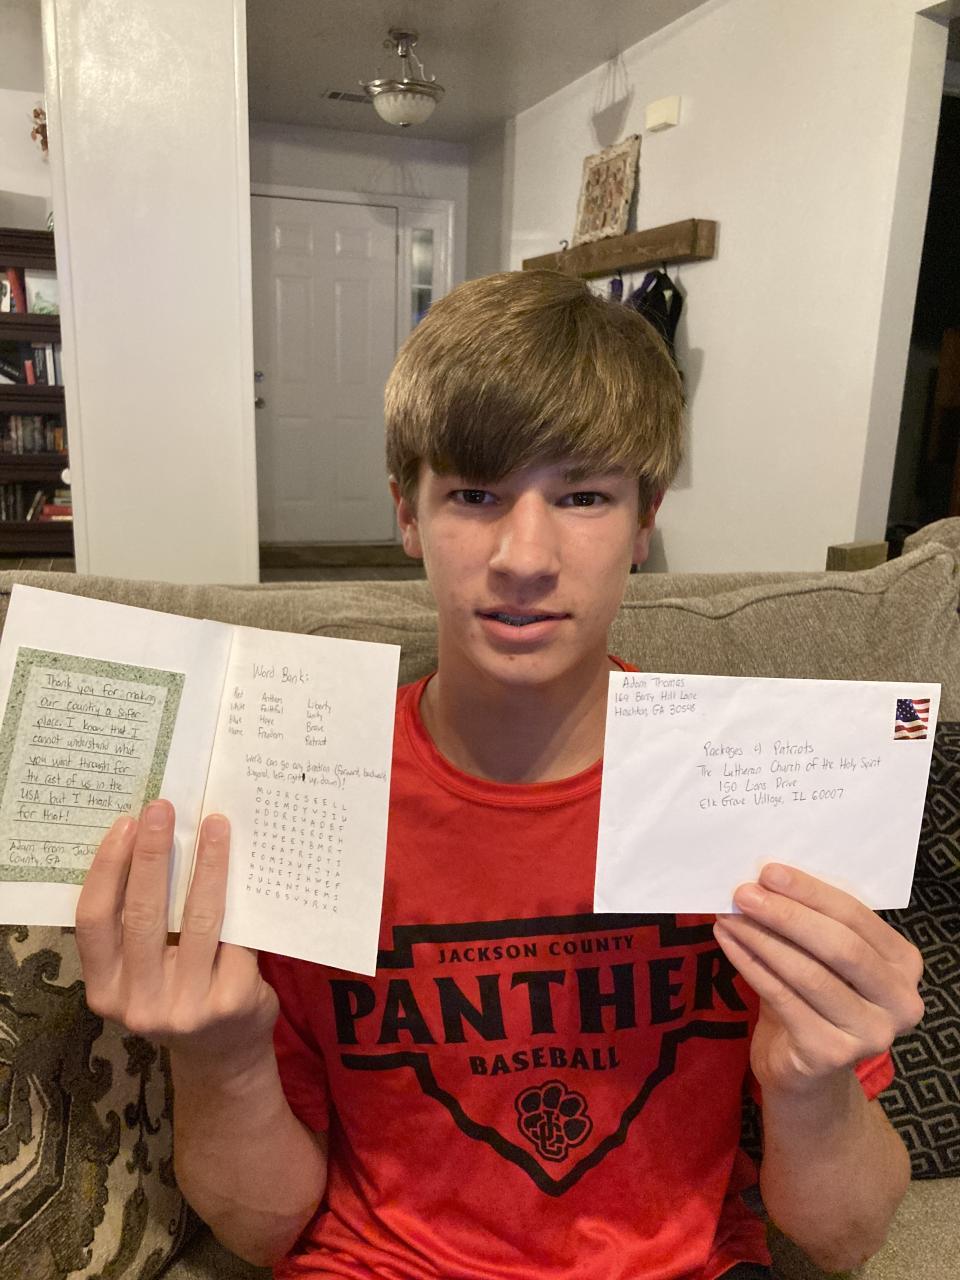 Thank you for making
our country a safer
place. I know that I
cannot understand what
you went through for
the rest of us in the
USA but I thank you
for that!
Adam from
County, GA
Word Bank:
Red Anthem Liberty
White Faithful Unity
Blue Hope Brave
Home Freedom Patriot
Words can go any direction (forward, backwards,
diagonal, left, right, up, down)!
M U J R C S E E L L
O O E M D Y V J I U
H D D R E U A D B F
C U R E A E R D E H
H X W E E Y B M R T
H O P A T R I O T I
E O M I X U F J Y A
H U N E T I H W E F
J U L A N T H E M I
H N C B S V X R X Q
Adam Thomas
164 Berry Hill Lane
Hoschton, GA 30548
Packages 4 Patriots
The Lutheran Church of the Holy Spirit
150 Lions Drive
Elk Grove Village, IL 60007
JACKSON COUNTY
PANTHER
BASEBALL
JC